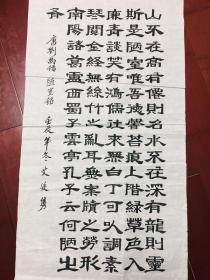 山不在高有僊則名水不在深有龍則靈
斯是陋室唯吾德馨苔痕上階綠草色入
廉青談笑有鴻儒往來無白丁可㠯調素
琴閱金經無絲竹之亂耳無案牘之勞形
南陽諸葛廬西蜀子雲亭孔子云何陋之
有
唐劉禹錫陋室銘